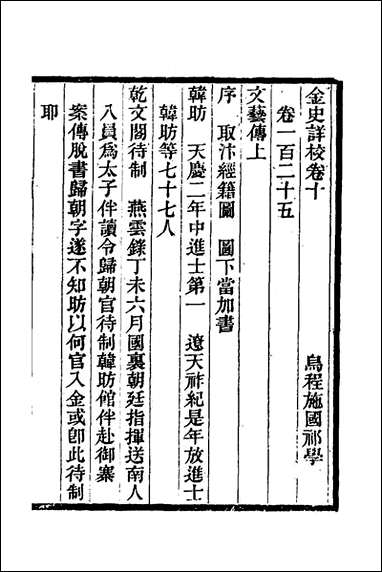 金史詳校卷十　烏程施國祁學
卷一百二十五
文藝傳上
序　取汴經籍圖　圖下當加書
韓昉　天慶二年中進士第一　遼天祚紀是年放進士
韓昉等七十七人
乾文閣待制　燕雲錄丁未六月國裏朝廷指揮送南人
八員爲太子伴讀令歸朝官待制韓昉館伴赴御寨
案傳脫書歸朝字遂不知昉以何官入金或卽此待制
耶